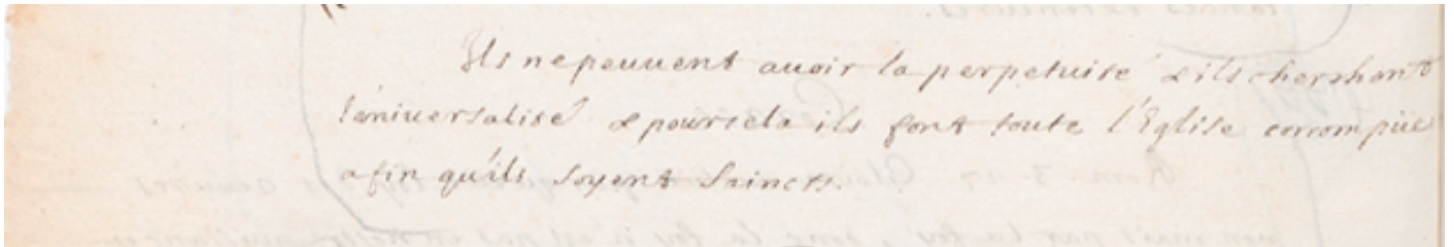 Ils ne peuuent auoir la perpetuité & ils cherchent
l'uniuersalité & pour cela ils font toute l'Eglise corrompüe
afin qu'ils soyent Saincts.